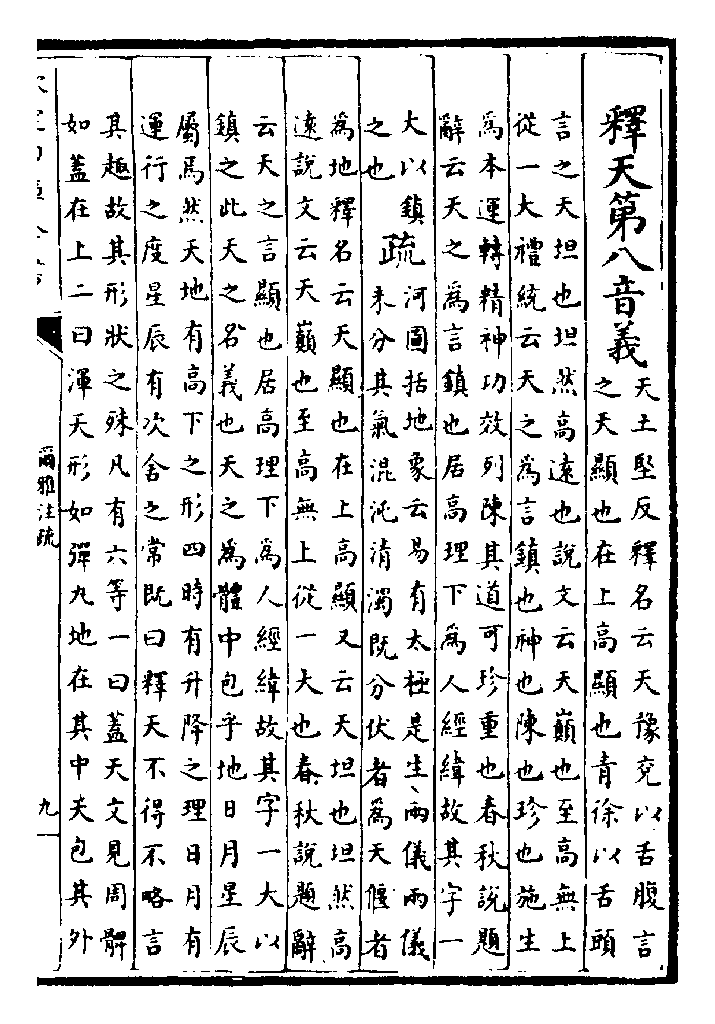 釋天第八音義
天土堅反釋名云天豫兗以舌腹言
之天顯也在上高顯也青徐以舌頭
言之天坦也坦然高遠也說文云天巔也至高無上
從一大禮統云天之為言鎮也神也陳也珍也施生
為本運轉精神功效列陳其道可珍重也春秋說題
辭云天之為言鎮也居高理下為人經緯故其字一
大以鎮
之也
疏
河圖括地象云易有太極是生兩儀兩儀
未分其氣混沌清濁既分伏者為天偃者
為地釋名云天顯也在上高顯又云天坦也坦然高
遠說文云天巔也至高無上從一大也春秋說題辭
云天之言顯也居高理下為人經緯故其字一大以
鎮之此天之名義也天之為體中包乎地日月星辰
屬焉然天地有高下之形四時有升降之理日月有
運行之度星辰有次舍之常既曰釋天不得不略言
其趣故其形狀之殊凡有六等一曰蓋天文見周髀
如蓋在上二曰渾天形如彈丸地在其中天包其外
爾雅注疏
九